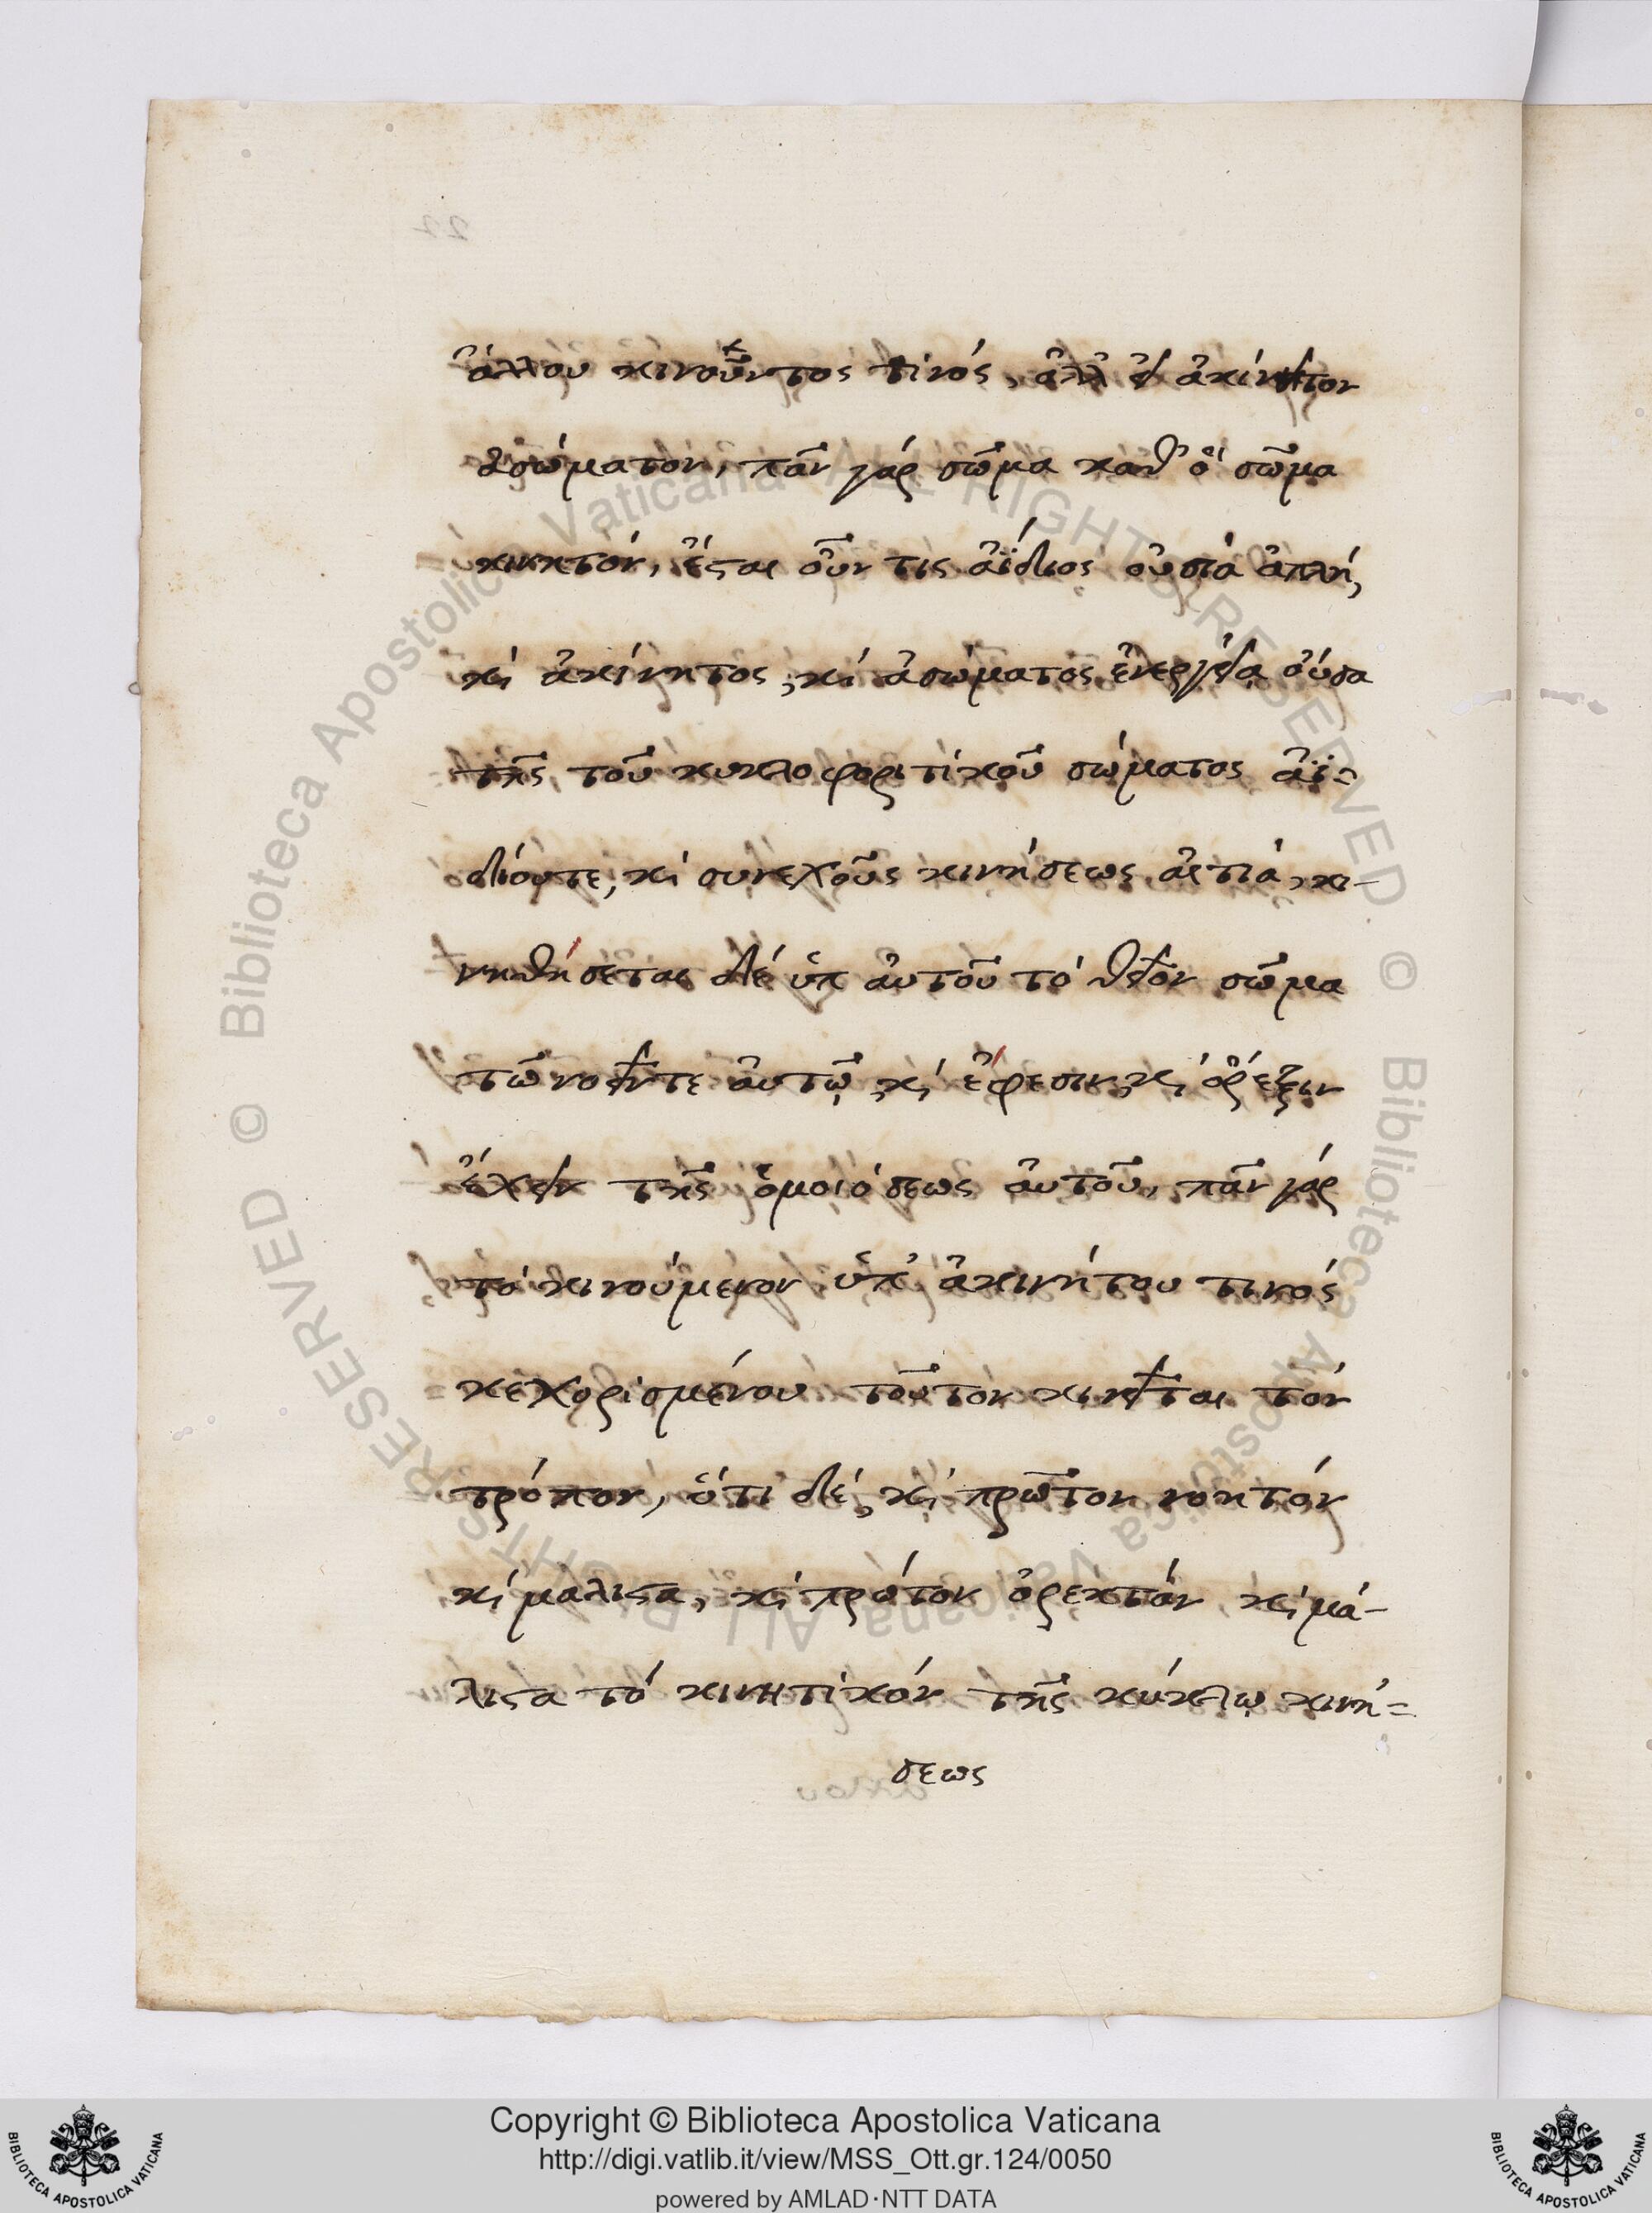 ἄλλου κινοῦντος τινός, ἀλλ εἰ ἀκίνητον
ἀσώματον, πᾶν γάρ σῶμα καθ' ὅ σῶμα
κινητόν, ἔςαι οὖν τις ἀΐδιος οὐσία ἀπλή,
κὶ ἀκίνητος, κὶ ἀσώματος ἐνεργεία οὐσα
τῆς τοῦ κυκλοφοριτικοῦ σώματος ἀϊ=
δίουτε, κὶ συνεχοῦς κινήσεως αἰτιά, κι-
νηθήσεται δέ ὑπ αὐτοῦ τό θεῖον σῶμα
τῶ νοεῖντε αὐτῷ, κὶ ἔφεσιν, κὶ ὄρεξιν
ἔχειν τῆς ὁμοιόσεως αὐτοῦ, πᾶν γάρ
τό κινούμενον ὑπ' ἀκινήτου τινός
κεχορισμένου τοῦτον κινεῖται τόν
τρόπον, ὅτι δέ, κὶ πρῶτον νοητόν
κὶ μαλιςα, κὶ πρώτον ὀρεκτόν κὶ μά-
λιςα τό κινητικόν τῆς κύκλῳ κινή=
σεως
Copyright © Biblioteca Apostolica Vaticana
http://digi.vatlib.it/view/MSS_Ott.gr.124/0050
powered by AMLAD·NTT DATA
BIBLIOTECA APOSTOLICA VATICANA
BIBLIOTECA APOSTOLICA VATICANA
© Biblioteca Apostolica Vaticana ALL RIGHTS RESERVED
© Biblioteca Apostolica Vaticana ALL RIGHTS RESERVED